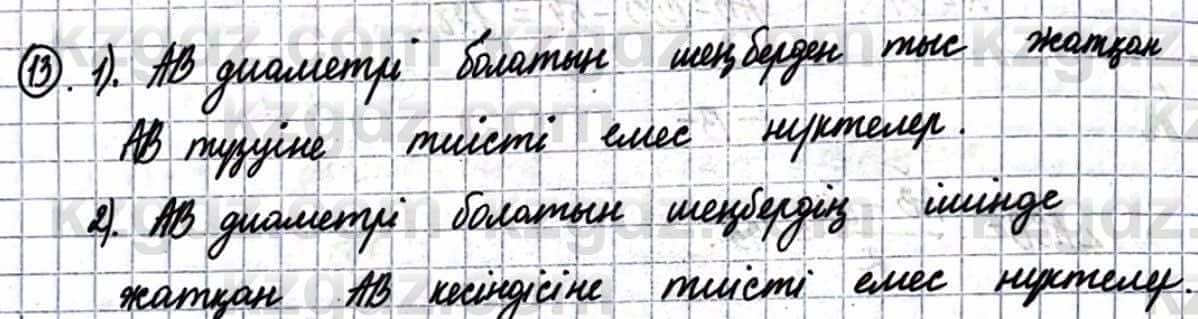 13. 1). AB диаметрі болатын шеңберден тыс жатқан
AB түзуіне тиісті емес нүктелер.
2). AB диаметрі болатын шеңбердің ішінде
жатқан AB кесіндісіне тиісті емес нүктелер.